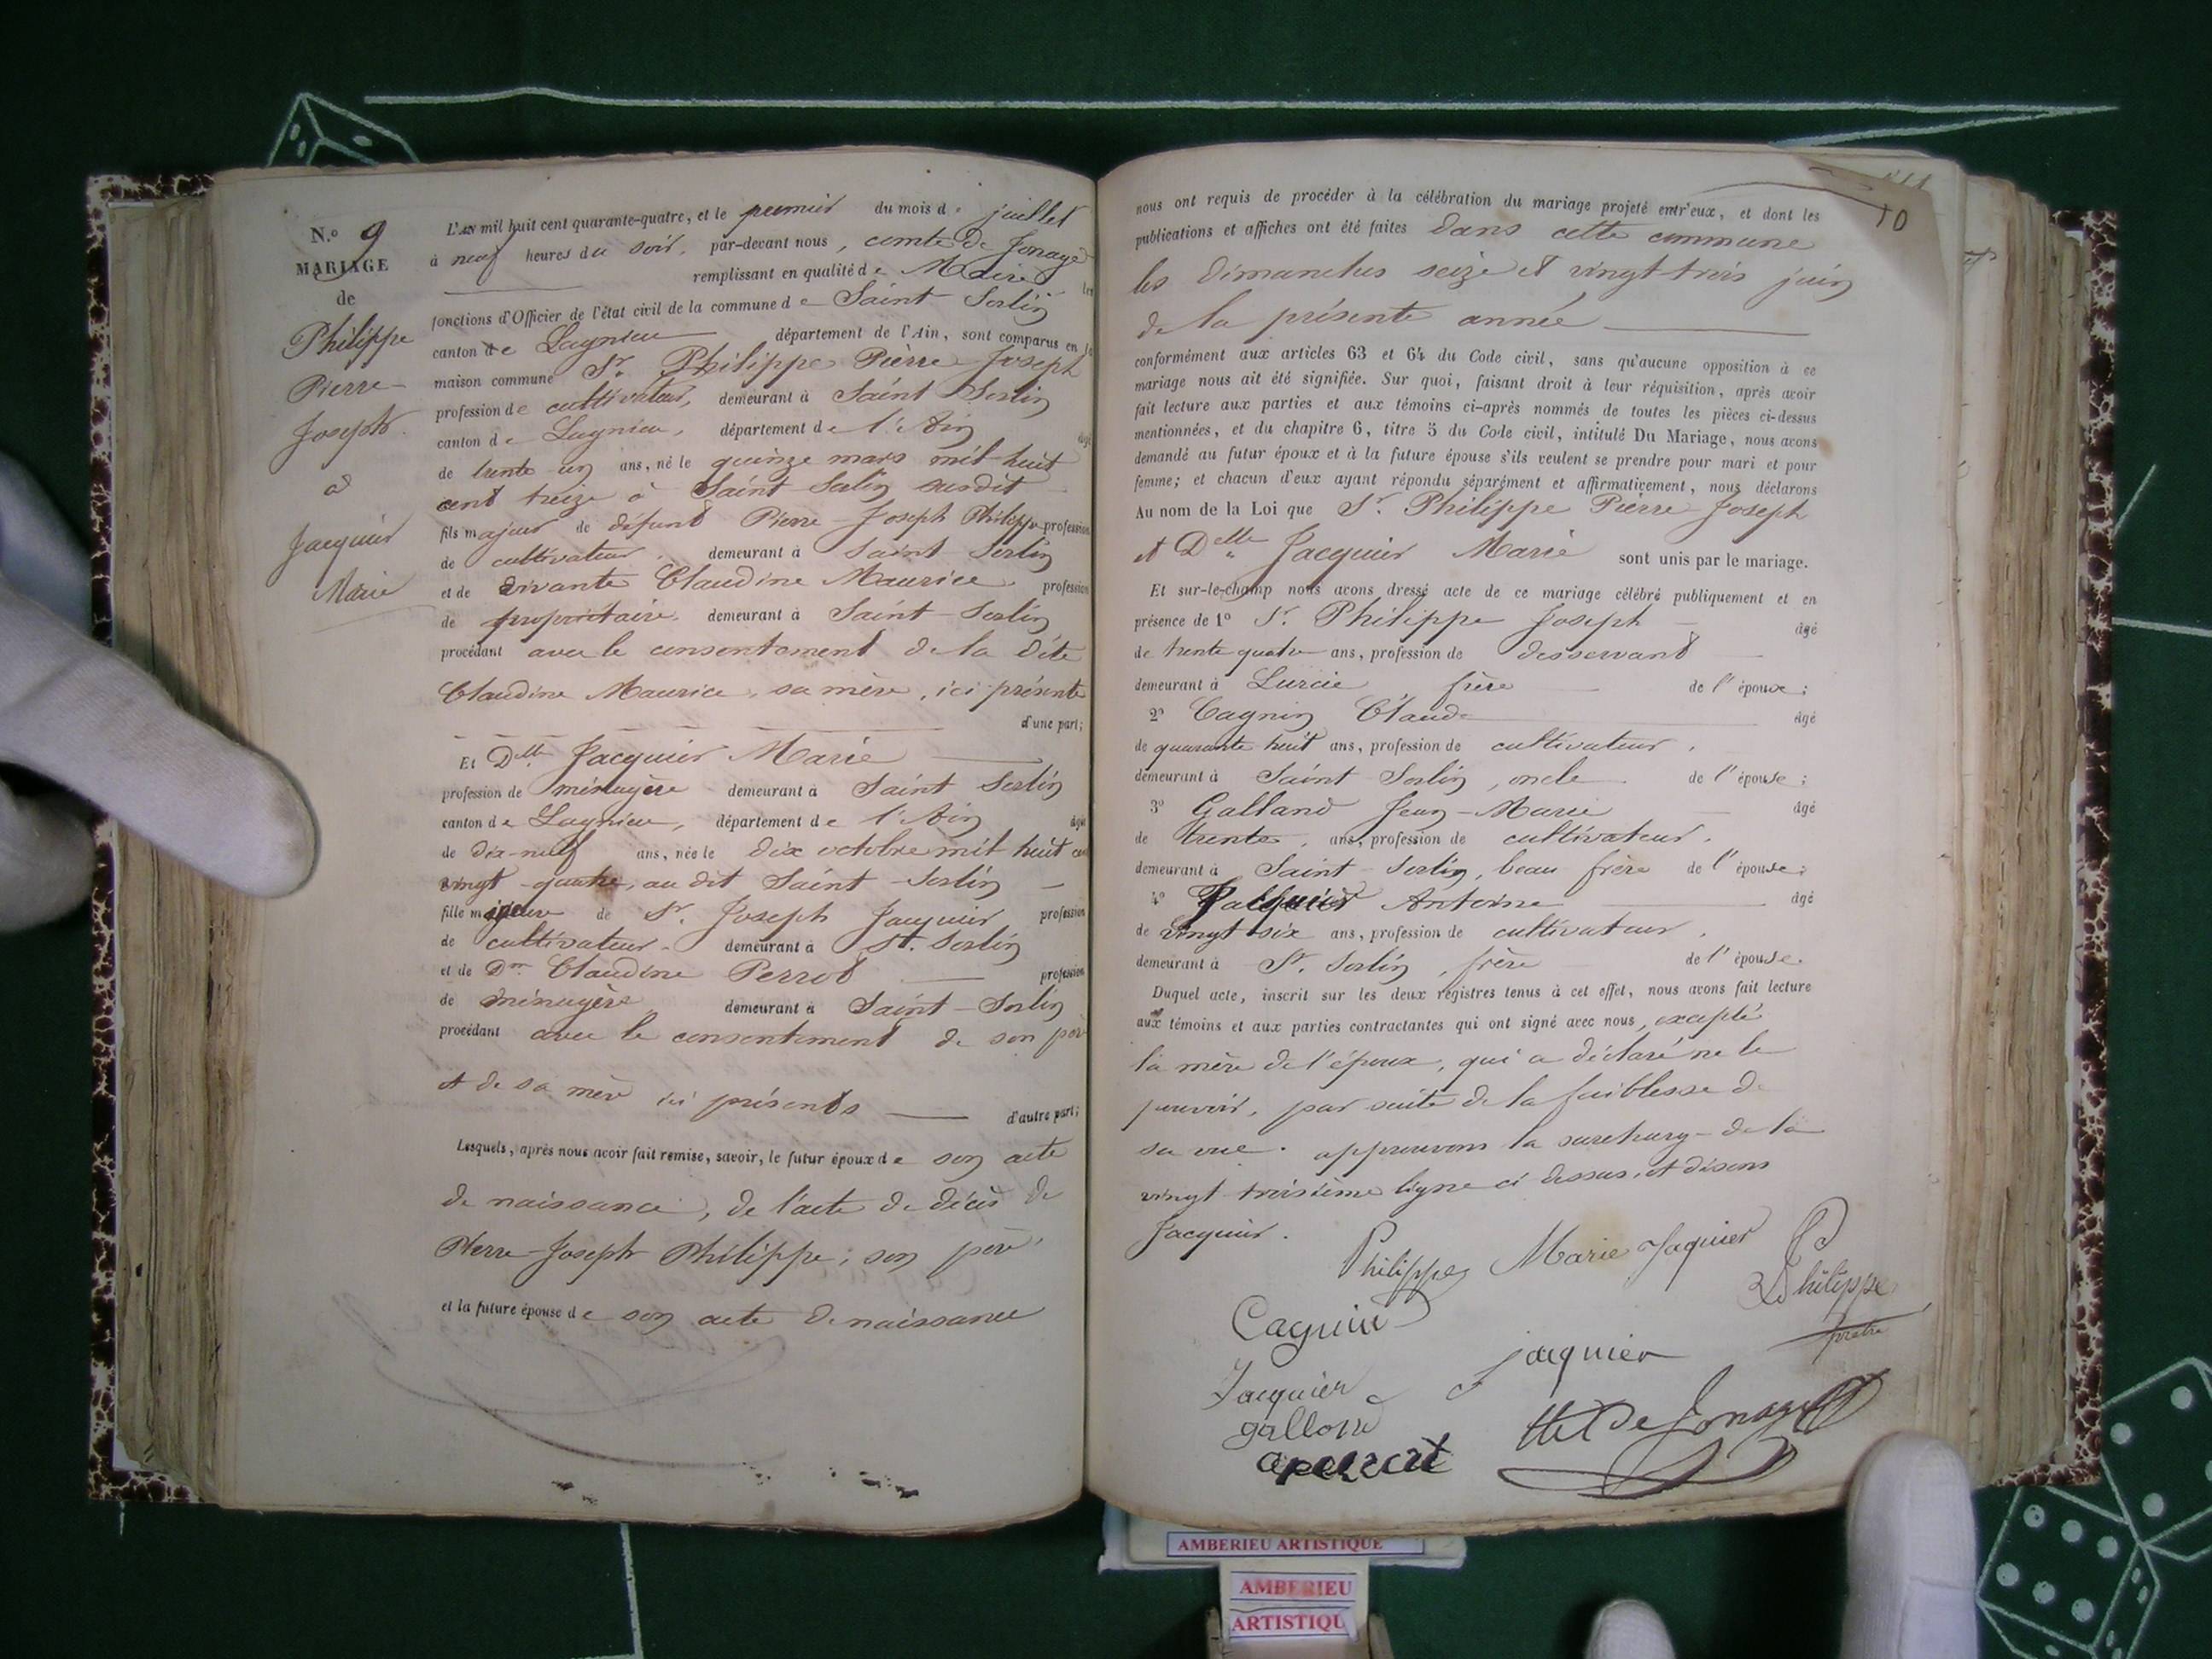 N.o 9
MARIAGE
de
Philippe
Pierre-
Joseph
et
Jacquier
Marie
L'AN mil huit cent quarante-quatre, et le premier du mois de juillet
à neuf heures du soir, par-devant nous, comte de Jonage
remplissant en qualité de Maire les
fonctions d'Officier de l'état civil de la commune de Saint-Sorlin
canton de Lagnieu département de l'Ain, sont comparus en la
maison commune Sr. Philippe Pierre-Joseph
profession de cultivateur, demeurant à Saint Sorlin
canton de Lagnieu, département de l'Ain âgé
de trente un ans, né le quinze mars mil-huit
cent treize à Saint-Sorlin susdit
fils majeur de défunt Pierre-Joseph Philippe profession
de cultivateur, demeurant à Saint Sorlin
et de vivante Claudine Maurice, profession
de propriétaire, demeurant à Saint-Sorlin
procédant avec le consentement de la dite
Claudine Maurice, sa mère, ici présente
d'une part;
Et Delle Jacquier Marie
profession de ménagère demeurant à Saint Sorlin
canton de Lagnieu, département de l'Ain âgée
de dix-neuf ans, née le dix octobre mil huit cent
vingt-quatre, au dit Saint-Sorlin
fille mineure de Sr. Joseph Jacquier profession
de cultivateur. demeurant à St. Sorlin
et de Dme Claudine Perrot profession
de ménagère demeurant à Saint-Sorlin
procédant avec le consentement de son père
et de sa mère ici présents d'autre part;
Lesquels, après nous avoir fait remise, savoir, le futur époux de son acte
de naissance, de l'acte de décès de
Pierre-Joseph Philippe, son père,
et la future épouse de son acte de naissance
10
nous ont requis de procéder à la célébration du mariage projeté entr'eux, et dont les
publications et affiches ont été faites dans cette commune
les dimanches seize et vingt-trois juin
de la présente année
conformément aux articles 63 et 64 du Code civil, sans qu'aucune opposition à ce
mariage nous ait été signifiée. Sur quoi, faisant droit à leur réquisition, après avoir
fait lecture aux parties et aux témoins ci-après nommés de toutes les pièces ci-dessus
mentionnées, et du chapitre 6, titre 5 du Code civil, intitulé Du Mariage, nous avons
demandé au futur époux et à la future épouse s'ils veulent se prendre pour mari et pour
femme; et chacun d'eux ayant répondu séparément et affirmativement, nous déclarons
Au nom de la Loi que Sr. Philippe Pierre-Joseph
et Delle Jacquier Marie sont unis par le mariage.
Et sur-le-champ nous avons dressé acte de ce mariage célébré publiquement et en
présence de 1o Sr. Philippe Joseph âgé
de trente quatre ans, profession de desservant
demeurant à Lurcie frère de l'époux;
2o Cagnin Claude âgé
de quarante huit ans, profession de cultivateur,
demeurant à Saint Sorlin, oncle de l'épouse;
3o Galland Jean-Marie âgé
de trente, ans, profession de cultivateur,
demeurant à Saint-Sorlin, beau frère de l'épouse;
4o Jacquier Antoine âgé
de vingt six ans, profession de cultivateur,
demeurant à St. Sorlin, frère de l'épouse.
Duquel acte, inscrit sur les deux registres tenus à cet effet, nous avons fait lecture
aux témoins et aux parties contractantes qui ont signé avec nous, excepté
la mère de l'époux, qui a déclaré ne le
pouvoir, par suite de la faiblesse de
sa vue. approuvons la surcharge de la
vingt-troisième ligne ci dessus, et disons
Jacquier.
Philippe Marie Jaquier
Philippe
prêtre
Cagnin
jacquier
Jacquier
galland
De Jonage
AMBERIEU ARTISTIQUE
AMBERIEU
ARTISTIQU